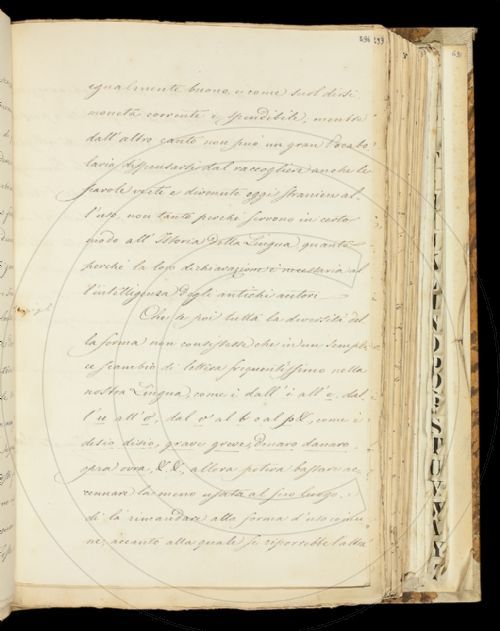 egualmente buona, e come suol dirsi
moneta corrente e spendibile; mentre
dall'altro canto non può un gran Vocabo
lario dispensarsi dal raccogliere anche le
parole viete e divenute oggi straniere al=
l'uso, non tanto perché servono in certo
modo all'Istoria della Lingua quanto
perché la loro dichiarazione è necessaria al
l'intelligenza degli antichi autori.
Che se poi tutta la diversità del
la forma non consistesse che in un sempli
ce scambio di lettera frequentissimo nella
nostra Lingua, come i dall'i all'e, dal
l'u all'o, dal v al b o al p &, come è
desio disio, grave greve, denaro danaro,
opra ovra, &. &., allora potrà bastare ac
cennare la meno usata al suo luogo, e
di là rimandare alla forma d'uso comu
ne, accanto alla quale si riporrebbe l'altra